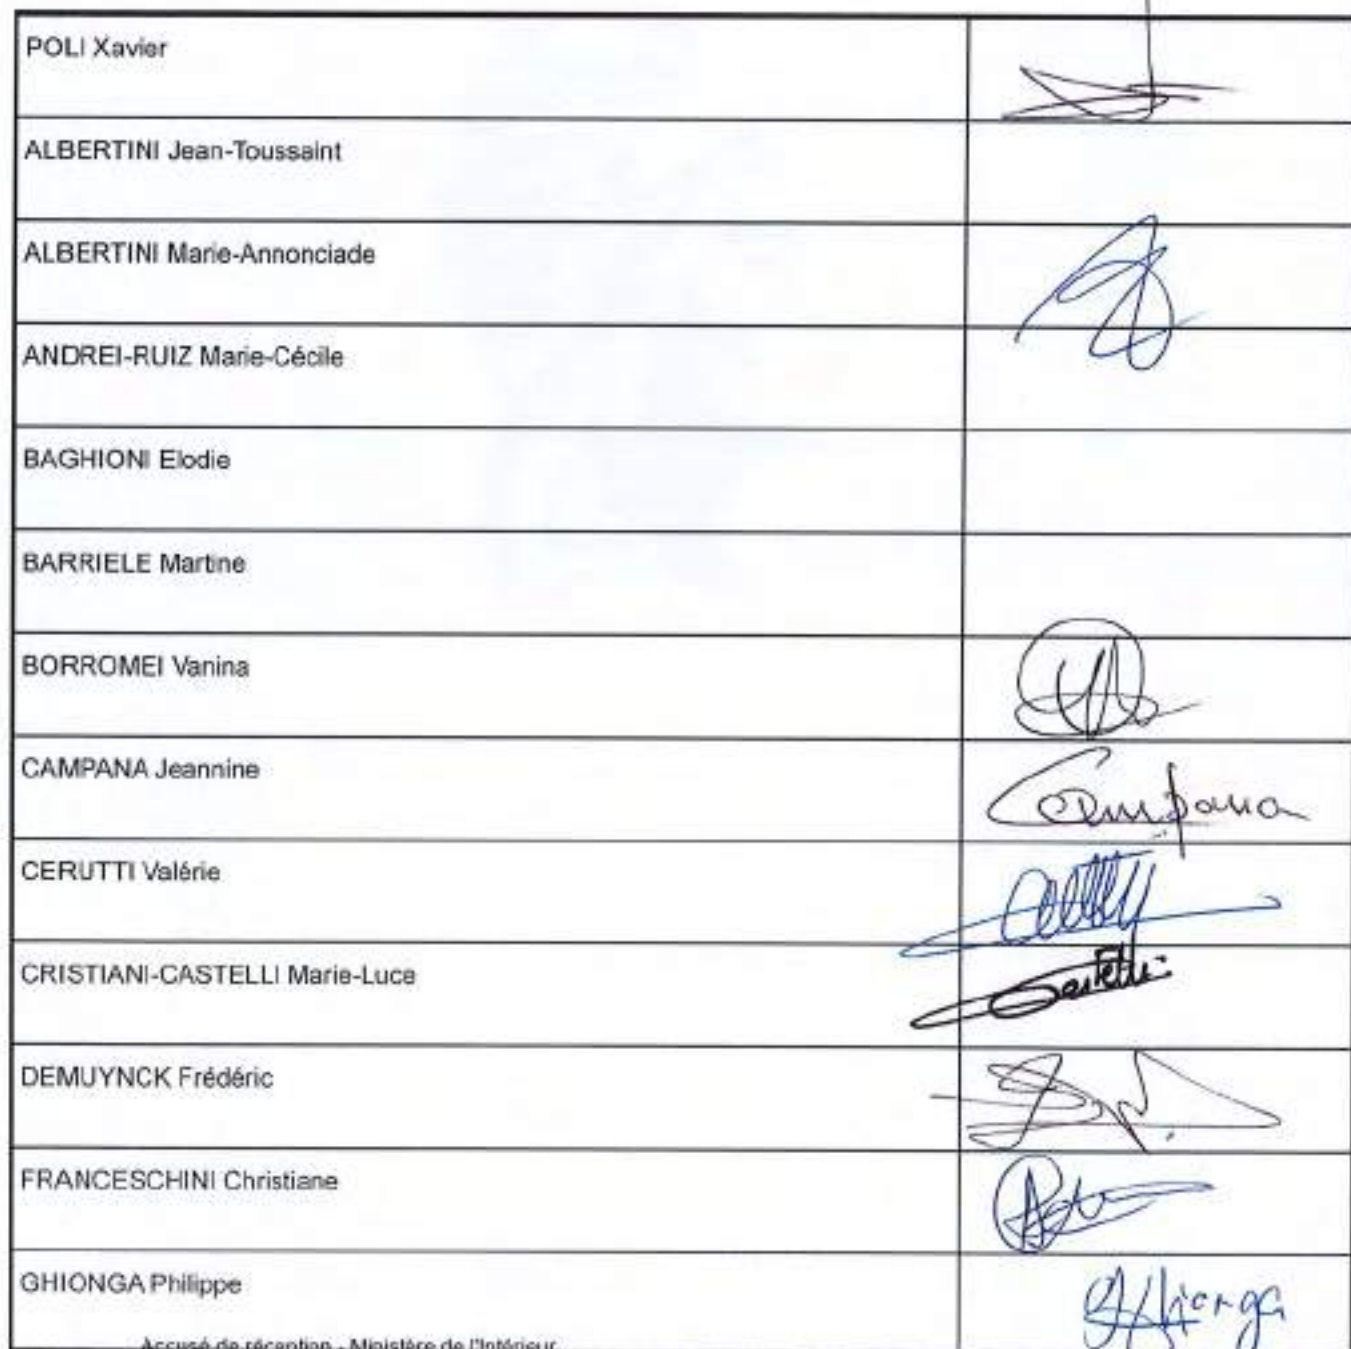 POLI Xavier
ALBERTINI Jean-Toussaint
ALBERTINI Marie-Annonciade
ANDREI-RUIZ Marie-Cécile
BAGHIONI Elodie
BARRIELE Martine
BORROMEI Vanina
CAMPANA Jeannine
Campana
CERUTTI Valérie
CRISTIANI-CASTELLI Marie-Luce
Castelli
DEMUYNCK Frédéric
FRANCESCHINI Christiane
GHIONGA Philippe
Ghionga
Accusé de réception - Ministère de l'Intérieur